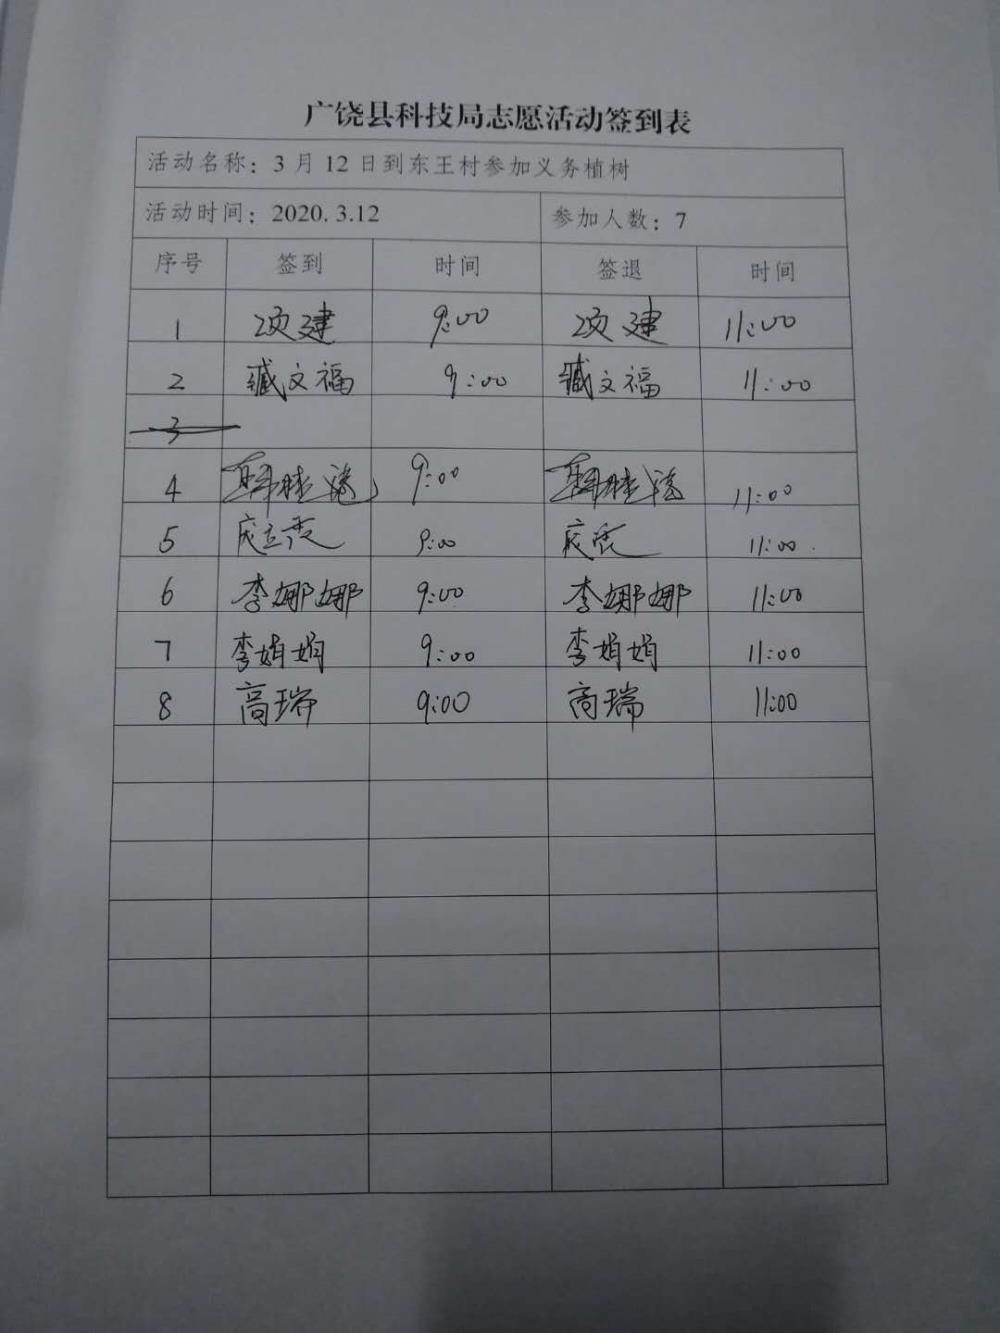 广饶县科技局志愿活动签到表
活动名称：3 月 12 日到东王村参加义务植树
活动时间：2020. 3.12 参加人数：7
序号 签到 时间 签退 时间
1 项建 9:00 项建 11:00
2 臧文福 9:00 臧文福 11:00
3
4 9:00 11:00
5 9:00 11:00
6 李娜娜 9:00 李娜娜 11:00
7 李娟娟 9:00 李娟娟 11:00
8 高瑞 9:00 高瑞 11:00